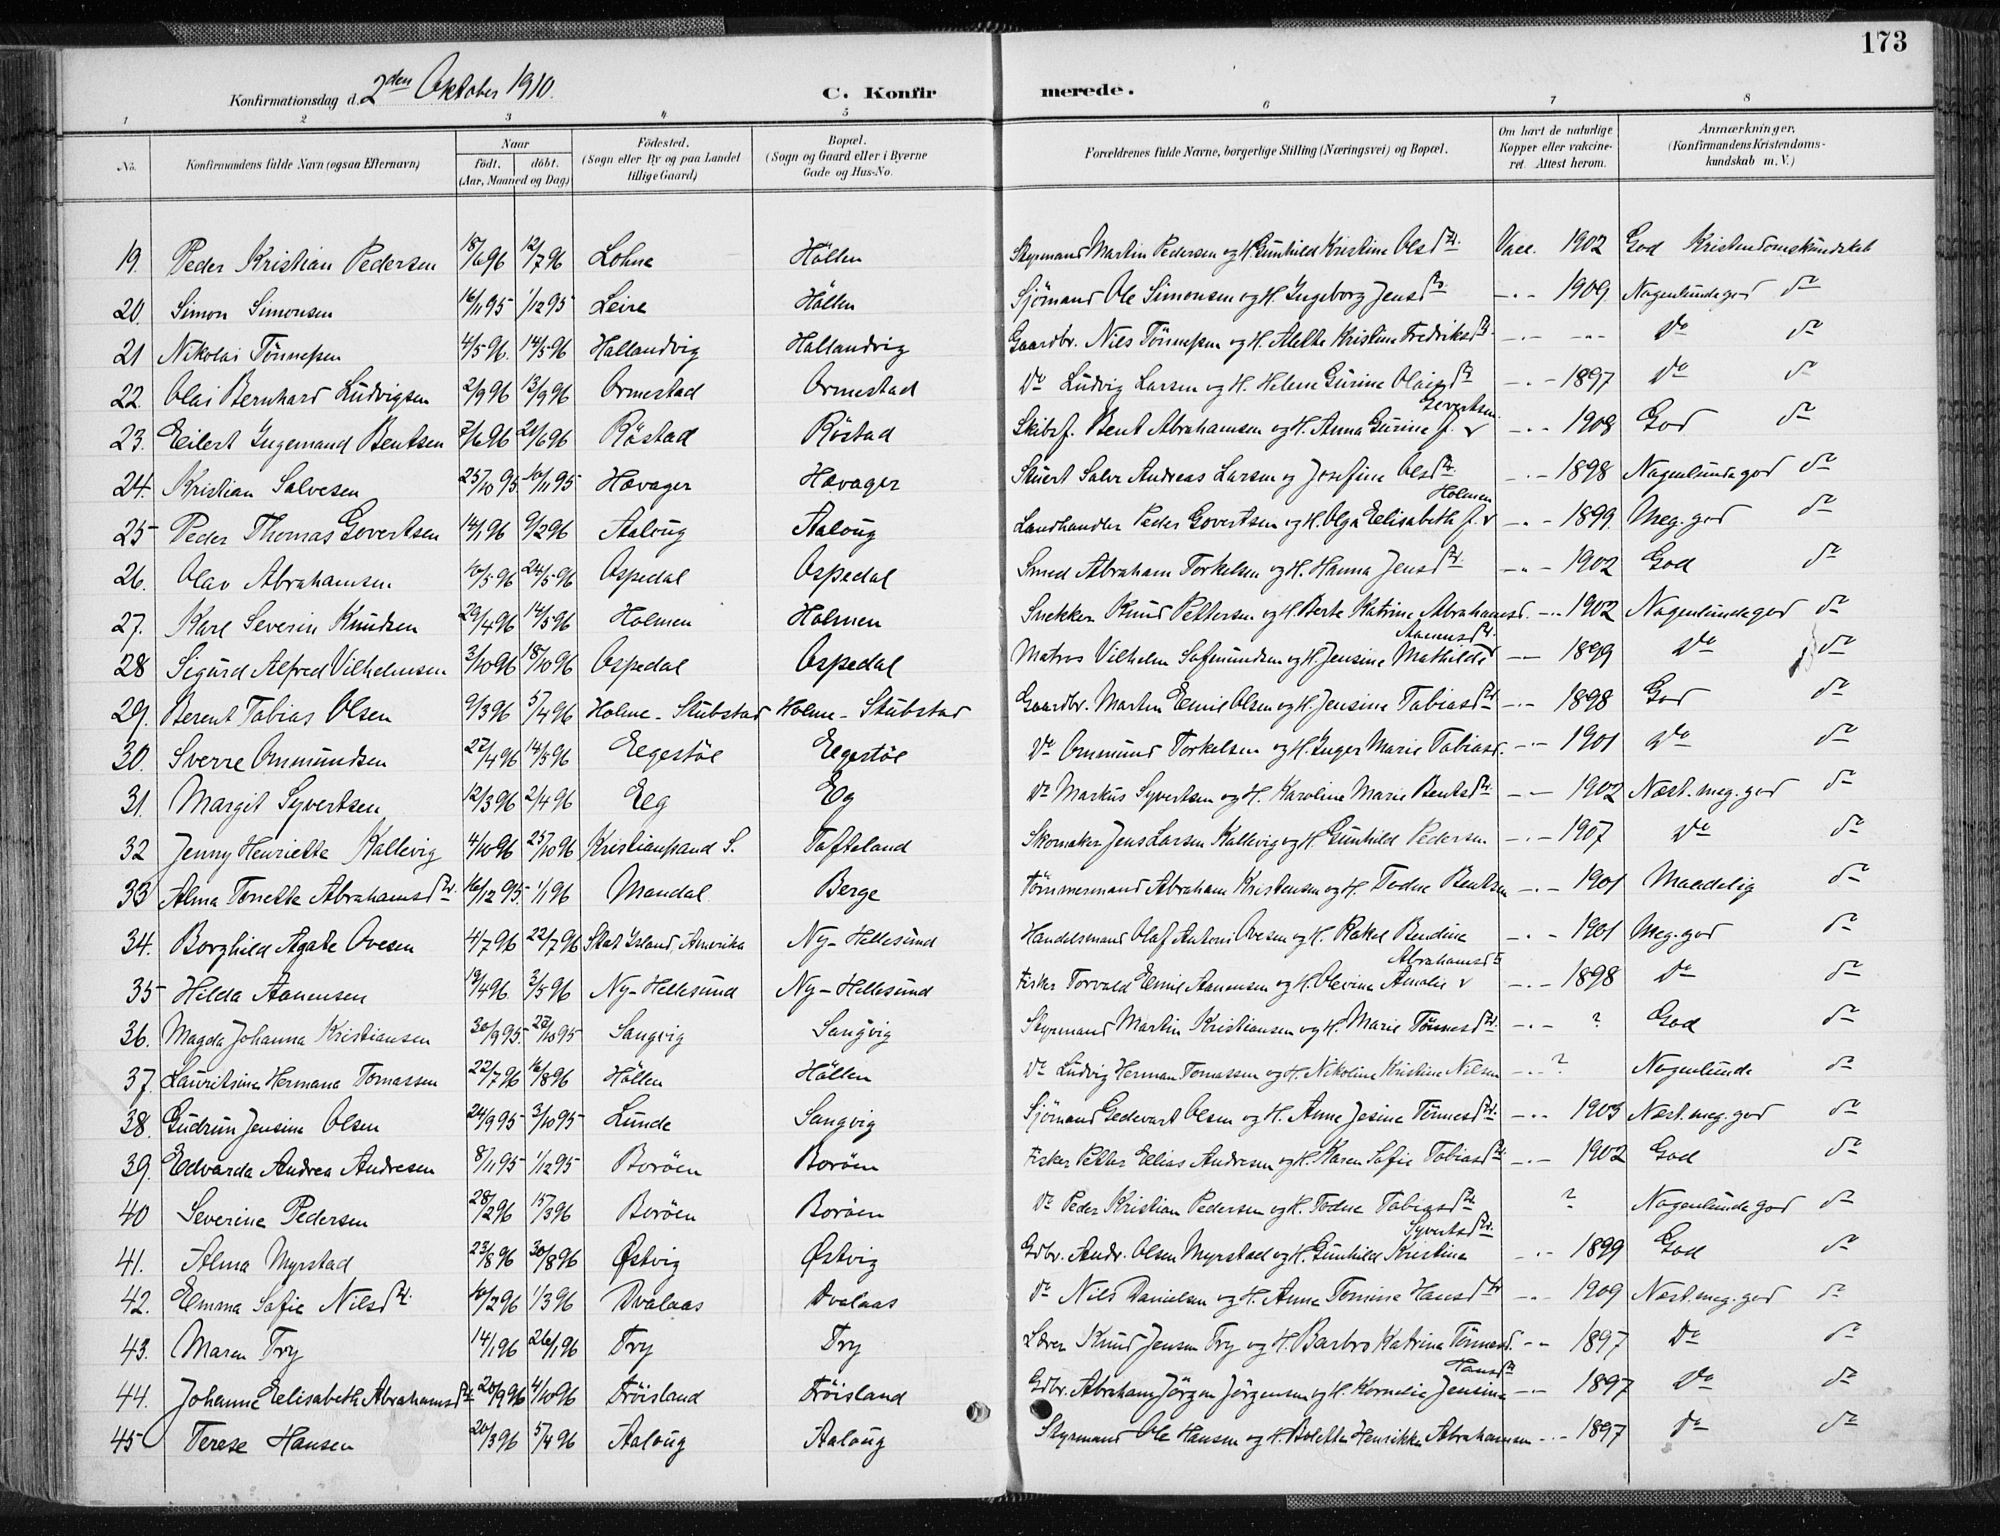 173
Konfirmationsdag d. 2den Oktober 1910.
C. Konfir merede.
1 2 3 4 5 6 7 8
No. Konfirmandens fulde Navn (ogsaa Efternavn) Naar født. døbt. (Aar, Maaned og Dag) Fødested. (Sogn eller By og paa Landet tillige Gaard) Bopæl. (Sogn og Gaard eller i Byerne Gade og Hus-No. Forældrenes fulde Navne, borgerlige Stilling (Næringsvei) og Bopæl. Om havt de naturlige Kopper eller vakcineret. Attest herom. Anmærkninger. (Konfirmandens Kristendomskundskab m. V.)
19. Peder Kristian Pedersen 18/6 96 12/7 96 Lohne Höllen Styrmand Martin Pedersen og H. Gunhild Kristine Olsdtr. Vacc. 1902 God Kristendomskundskab
20. Simon Simonsen 16/11 95 1/12 95 Leire Höllen Sjömand Ole Simonsen og H. Ingeborg Jensdtr. -"- 1909 Nogenlunde god do
21 Nikolai Tönnessen 4/5 96. 14/5 96 Hallandvig Hallandvig Gaardbr. Nils Tönnessen og H. Alette Kristine Fredriksdtr. -"- -"- Do do
22. Olai Bernhard Ludvigsen 2/9 96 13/9 96 Ormestad Ormestad Do Ludvig Larsen og H. Helene Gurine Olaisdtr -"- 1897 Do do
23. Eilert Ingemand Bentsen 7/6 96 21/6 96 Röstad Röstad Skibsf. Bent Abrahamsen og H. Anna Gurine f. Govertsen -"- 1908 God do
24. Kristian Salvesen 25/10 95. 10/11 95 Hævager Hævager Stuert Salve Andreas Larsen og Josefine Olsdtr. -"- 1898 Nogenlunde god do
25 Peder Thomas Govertsen 14/1 96 9/2 96 Aaloug Aaloug Landhandler Peder Govertsen og H. Olga Elisabeth f. Holmen -"- 1899 Meg. god do
26. Olav Abrahamsen 10/5 96 24/5 96 Ospedal Ospedal Smed Abraham Torkelsen og H. Hanna Jensdtr. -"- 1902 God do
27. Karl Severin Knudsen 29/4 96 14/5 96 Holmen Holmen Snekker Knud Pettersen og H. Berte Katrine Abrahamsd. -"- 1902 Nogenlunde god do
28 Sigurd Alfred Vilhelmsen 3/10 96 18/10 96 Ospedal Ospedal Matros Vilhelm Gusmundsen og H. Jensine Mathilde Aanensdtr. -"- 1899 Do do
29. Berent Tobias Olsen 9/3 96 5/4 96 Holme-Stubstad Holme-Stubstad Gaardbr. Martin Emil Olsen og H. Jensine Tobiasdtr -"- 1898 God do
30. Sverre Ommundsen 27/4 96 14/5 96 Egestöl Egestöl Do Ommund Torkelsen og H. Inger Marie Tobiasd. -"- 1901 Do do
31. Margit Syvertsen 12/3 96 2/4 96 Eg Eg Do Markus Syvertsen og H. Karoline Marie Bentsdtr. -"- 1902 Næst. meg. god do
32 Jenny Henriette Kallevig 4/10 96 25/10 96 Kristianssand S. Tofteland Skomaker Jens Larsen Kallevig og H. Gunhild Pedersen -"- 1907 Do do
33 Alma Tonette Abrahamsdtr. 16/12 95. 1/1 96 Mandal Berge Tömmermand Abraham Kristensen og H. Todne Bentsen -"- 1901 Maadelig do
34. Borghild Agate Ovesen 4/7 96 22/7 96 Stat Island, Amerika Ny-Hellesund Handelsmand Olaf Antoni Ovesen og H. Rakel Bendine -"- 1901 Meg. god do
35 Hilda Aanensen 19/4 96 3/5 96 Ny-Hellesund Ny-Hellesund Fisker Torvald Emil Aanensen og H. Olevine Amalie Abrahamsdtr -"- 1898 Do do
36. Magda Johanna Kristiansen 30/9 95. 27/10 95 Sangvig Sangvig Styrmand Martin Kristiansen og H. Marie Tönnesdtr. -"- ? God do
37. Lauritsine Hermana Tomassen 22/7 96 16/8 96 Höllen Höllen Do Ludvig Herman Tomassen og H. Nikoline Kristine Nilsen -"- ? Nogenlunde do
38. Gudrun Jensine Olsen 24/9 95 3/10 95 Lunde Sangvig Sjömand Gedevart Olsen og H. Anne Jesine Tönnesdtr. -"- 1903 Næst. meg. god do
39. Edvarda Andrea Andresen 8/11 95 1/12 95 Boröen Boröen Fisker Petter Elias Andresen og H. Karen Sofie Tobiasdtr. -"- 1902 God do
40 Severine Pedersen 28/2 96 15/3 96 Boröen Boröen Do Peder Kristian Pedersen og H. Todne Tobiasdtr ? Nogenlunde god do
41. Alma Myrstad 23/8 96 30/8 96 Østvig Østvig Gdbr. Andr. Olsen Myrstad og H. Gunhild Kristina Syvertsdtr. -"- 1899 God do
42. Emma Sofie Nilsdtr. 10/2 96 1/3 96 Dvalaas Dvalaas Do Nils Danielsen og H. Anne Tomine Hansdtr -"- 1909 Næst. meg. god do
43. Maren Try 14/1 96 26/1 96 Try Try Lærer Knud Jensen Try og H. Barbro Katrine Tönnesd. -"- 1897 Do do
44. Johanne Elisabeth Abrahamsdtr. 20/9 96 4/10 96 Fröisland Fröisland Gdbr. Abraham Jörgen Jörgensen og H. Kornelie Jensine Hansdtr -"- 1897 Do do
45 Terese Hansen 20/3 96 5/4 96 Aaloug Aaloug Styrmand Ole Hansen og H. Bolette Henrikke Abrahamsen -"- 1897 Do do